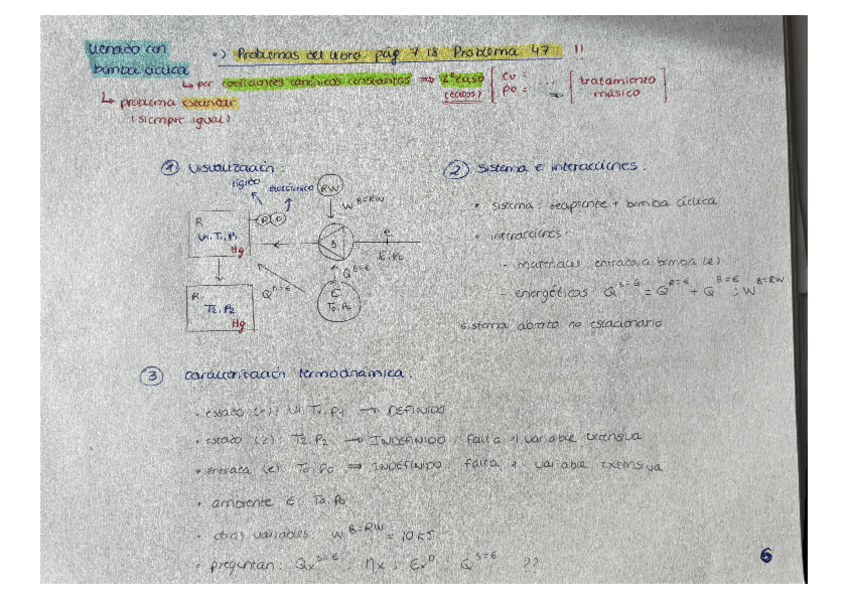 llenado con
bomba cíclica
•) Problemas del libro. pág 718 Problema 47 !!
↳ por coeficientes canónicos constantes ⇒ 2º caso
(ecinos)
cv = ...
po = ...
tratamiento
másico
↳ problema estándar
(siempre igual)
① visualización:
rígido
RW
W B=RW
R
V1, T1, P1
Hg
B
e
T0, P0
Q B=E
Q R=E
E
T0, P0
R
T2, P2
Hg
② sistema e interacciones:
• sistema: recipiente + bomba cíclica
• interacciones:
- materiales: entrada a bomba (e)
- energéticas: Q S=E = Q R=E + Q B=E ; W B=RW
sistema abierto no estacionario
③ caracterización termodinámica:
• estado (1): V1, T1, P1 → DEFINIDO
• estado (2): T2, P2 → INDEFINIDO: falta 1 variable extensiva
• entrada (e): T0, P0 ⇒ INDEFINIDO: falta 1 variable extensiva
• ambiente E: T0, P0
• otras variables: W B=RW = 10 kJ
• preguntan: Qx S=E ; ηx ; Ex D ; Q S=E ??
6